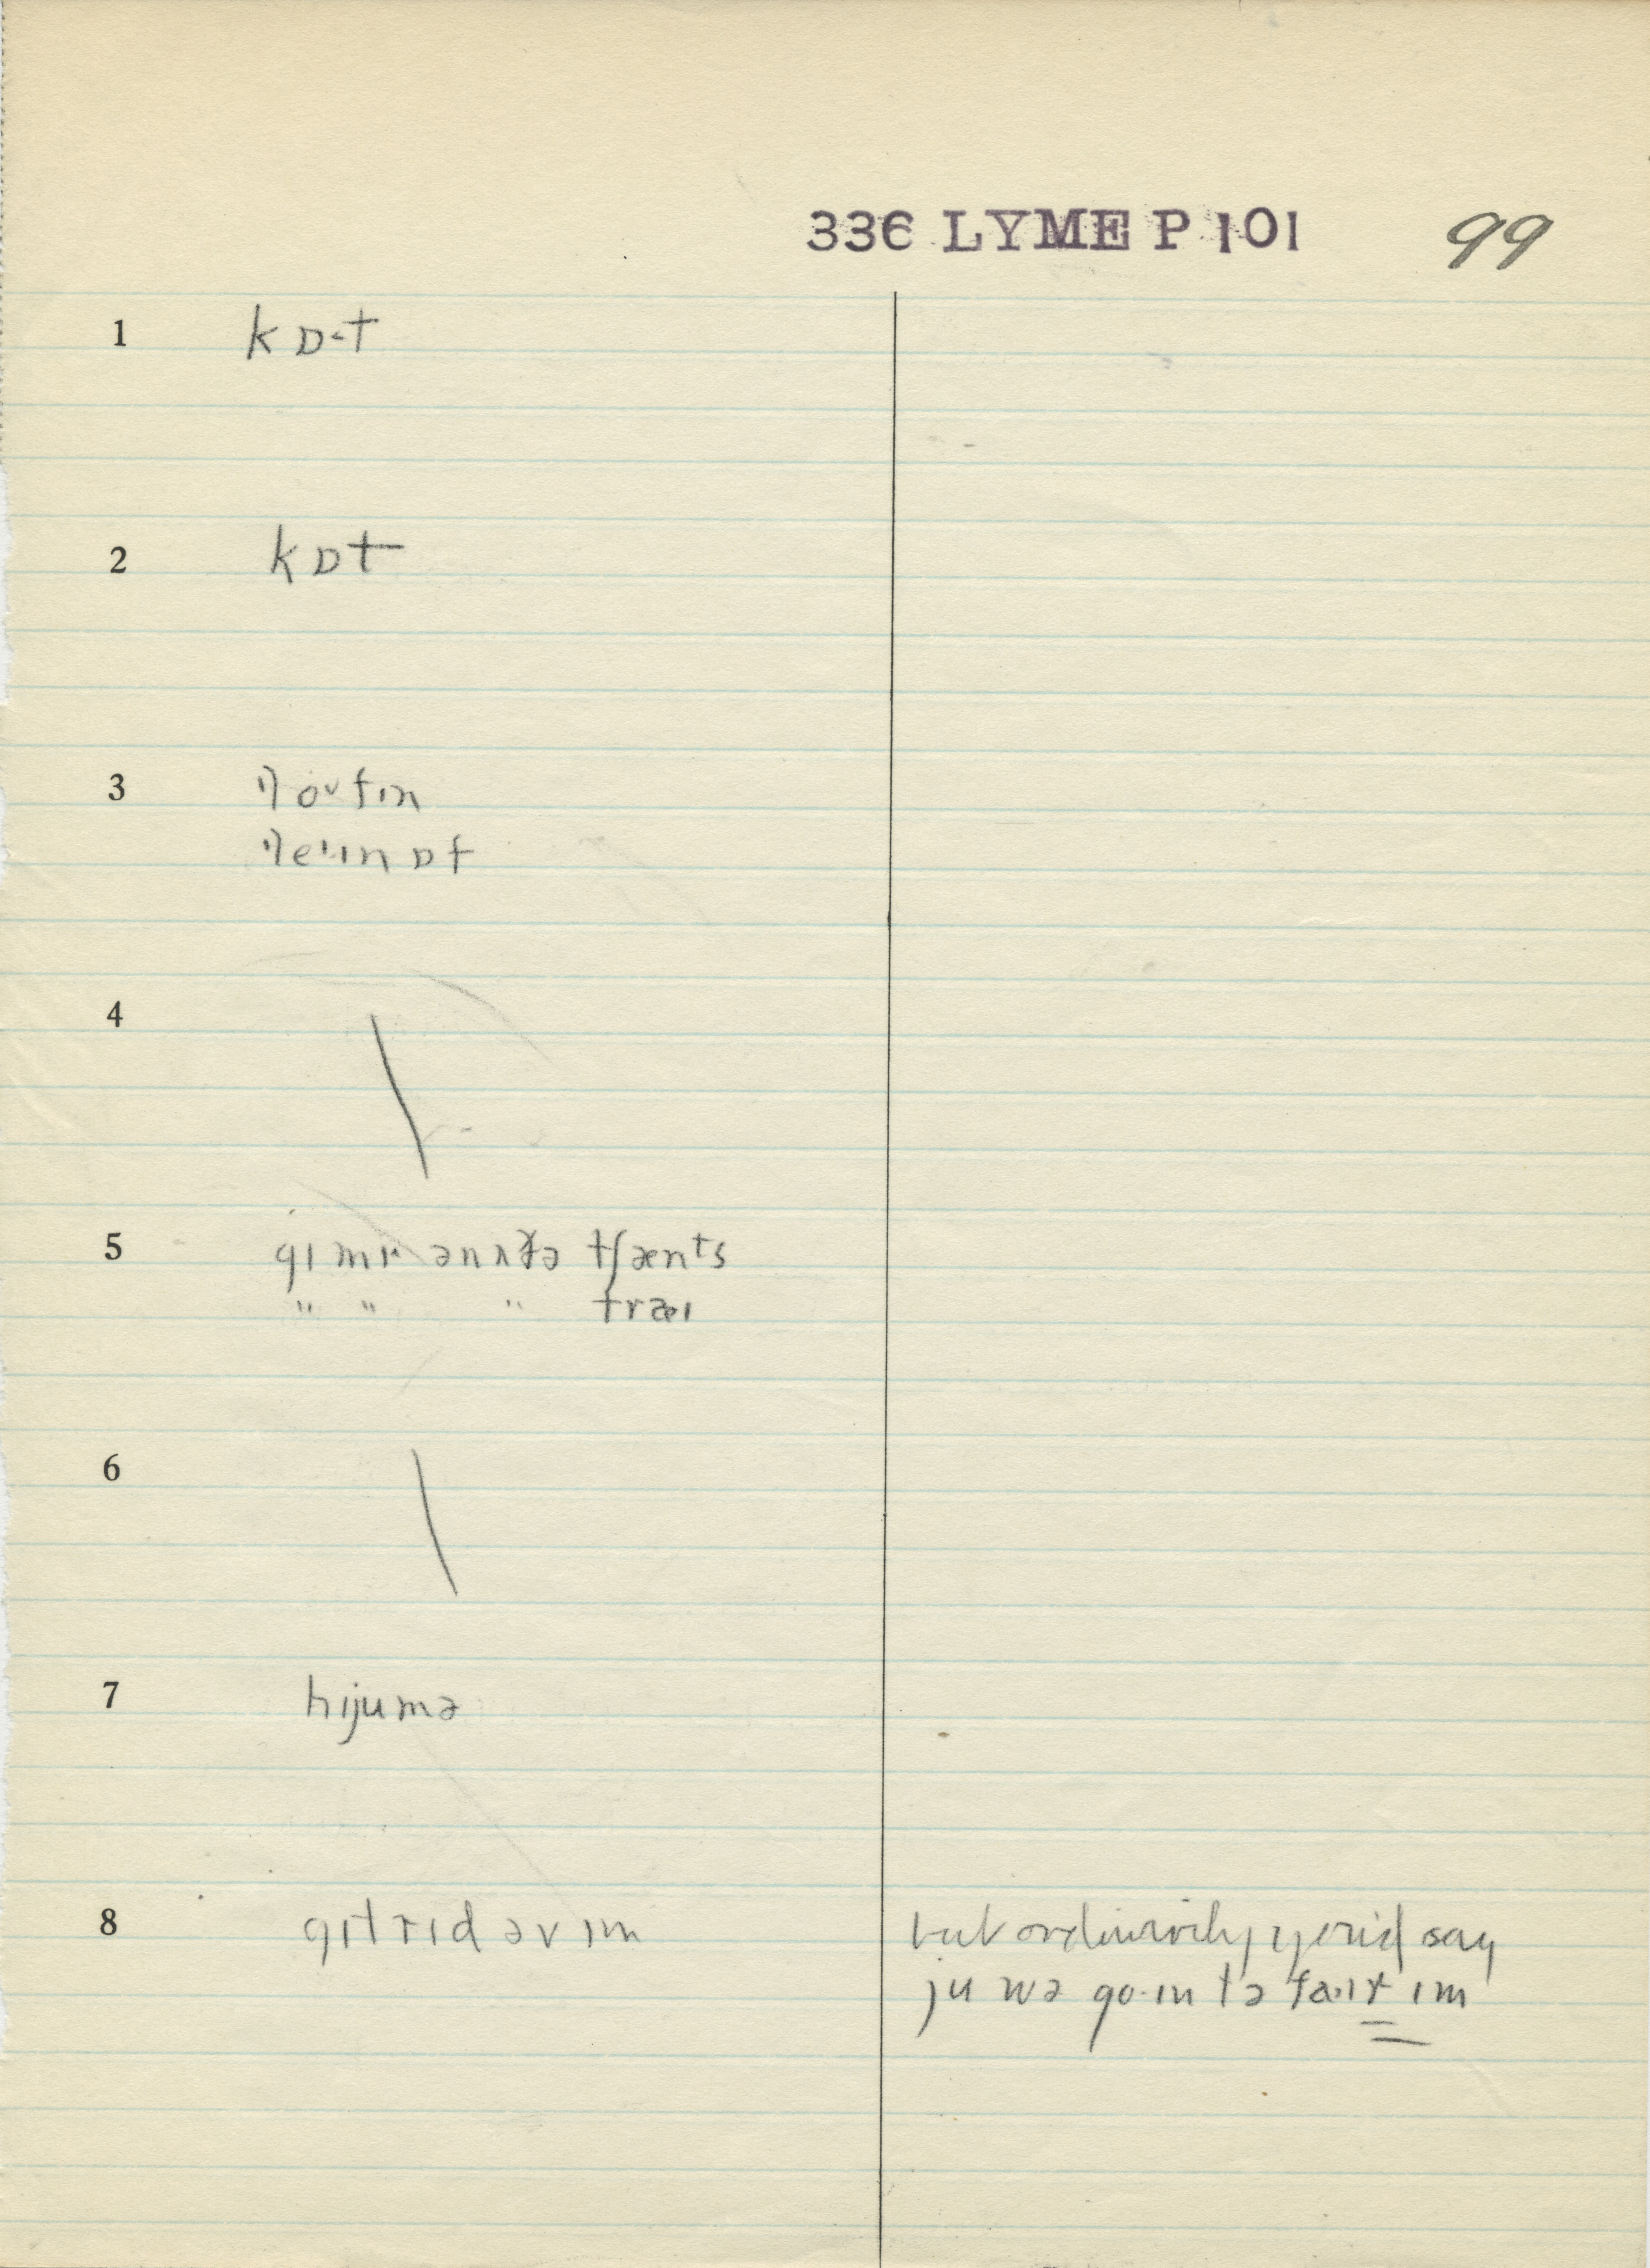 336 LYME P 101 99
1 kɒ˞t
2 kɒt
3
4
5 gɪ mɪ ənʌðə tʃænts
" " " træɪ
6
7 hijumə
8 gɪt rɪd əv ɪm
but ordinarily you'd say
ju wə go·ɪn tə faɪt ɪm